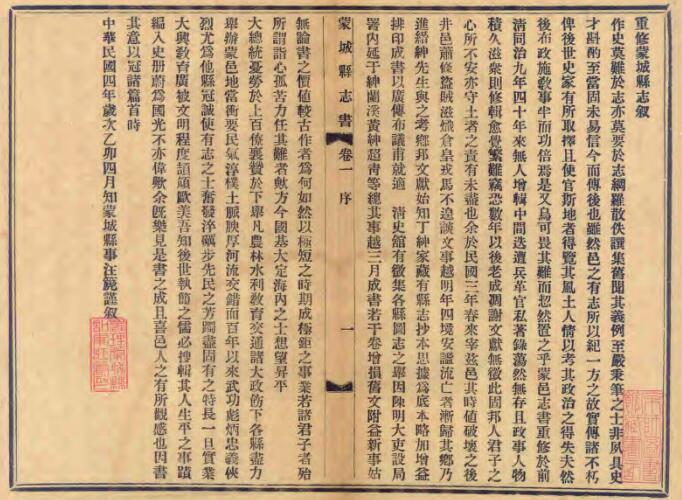 重修蒙城縣志敘
作史莫難於志亦莫要於志網羅散佚譔集舊聞其義例至嚴秉筆之士非夙具史
才斟酌至當固未易信今而傳後也雖然邑之有志所以紀一方之故實傳諸不朽
俾後世史家有所取擇且使官斯地者得覽其風土人情以考其政治之得失夫然
後布政施敎事半而功倍焉是又烏可畏其難而恝然置之乎蒙邑志書重修於前
淸同治九年四十年來無人增輯中間迭遭兵革官私著錄蕩然無存且政事人物
積久滋衆則修輯愈覺繁難竊恐數年以後老成凋謝文獻無徵此固邦人君子之
心所不安亦守土者之責有未盡也余於民國三年春來宰茲邑其時値破壞之後
井邑蕭條盜賊滋熾倉皇戎馬不遑談文事越明年四境安謐流亡者漸歸其鄕乃
進縉紳先生與之考鄕邦文獻始知丁紳家藏有縣志抄本思據爲底本略加增益
排印成書以廣傳布議甫就適　淸史館有徵集各縣圖志之舉因陳明大吏設局
署內延于紳蘭溪黃紳超青等總其事越三月成書若干卷增損舊文附益新事姑
蒙城縣志書　卷一　序　一
無論書之價値較古作者爲何如然以極短之時期成極鉅之事業若諸君子者殆
所謂詣心孤苦力任其難者歟方今國基大定海內之士想望昇平
大總統憂勞於上百僚襄贊於下舉凡農林水利敎育交通諸大政飭下各縣盡力
舉辦蒙邑地當衝要民氣淳樸土脈腴厚河流交錯而百年以來武功彪炳忠義俠
烈尤爲他縣冠誠使有志之士奮發淬礪步先民之芳躅盡固有之特長一旦實業
大興敎育廣被文明程度頡頏歐美吾知後世執簡之儒必搜輯其人生平之事蹟
編入史册蔚爲國光不亦偉歟余旣樂見是書之成且喜邑人之有所觀感也因書
其意以冠諸篇首時
中華民國四年歲次乙卯四月知蒙城縣事汪篪謹敘